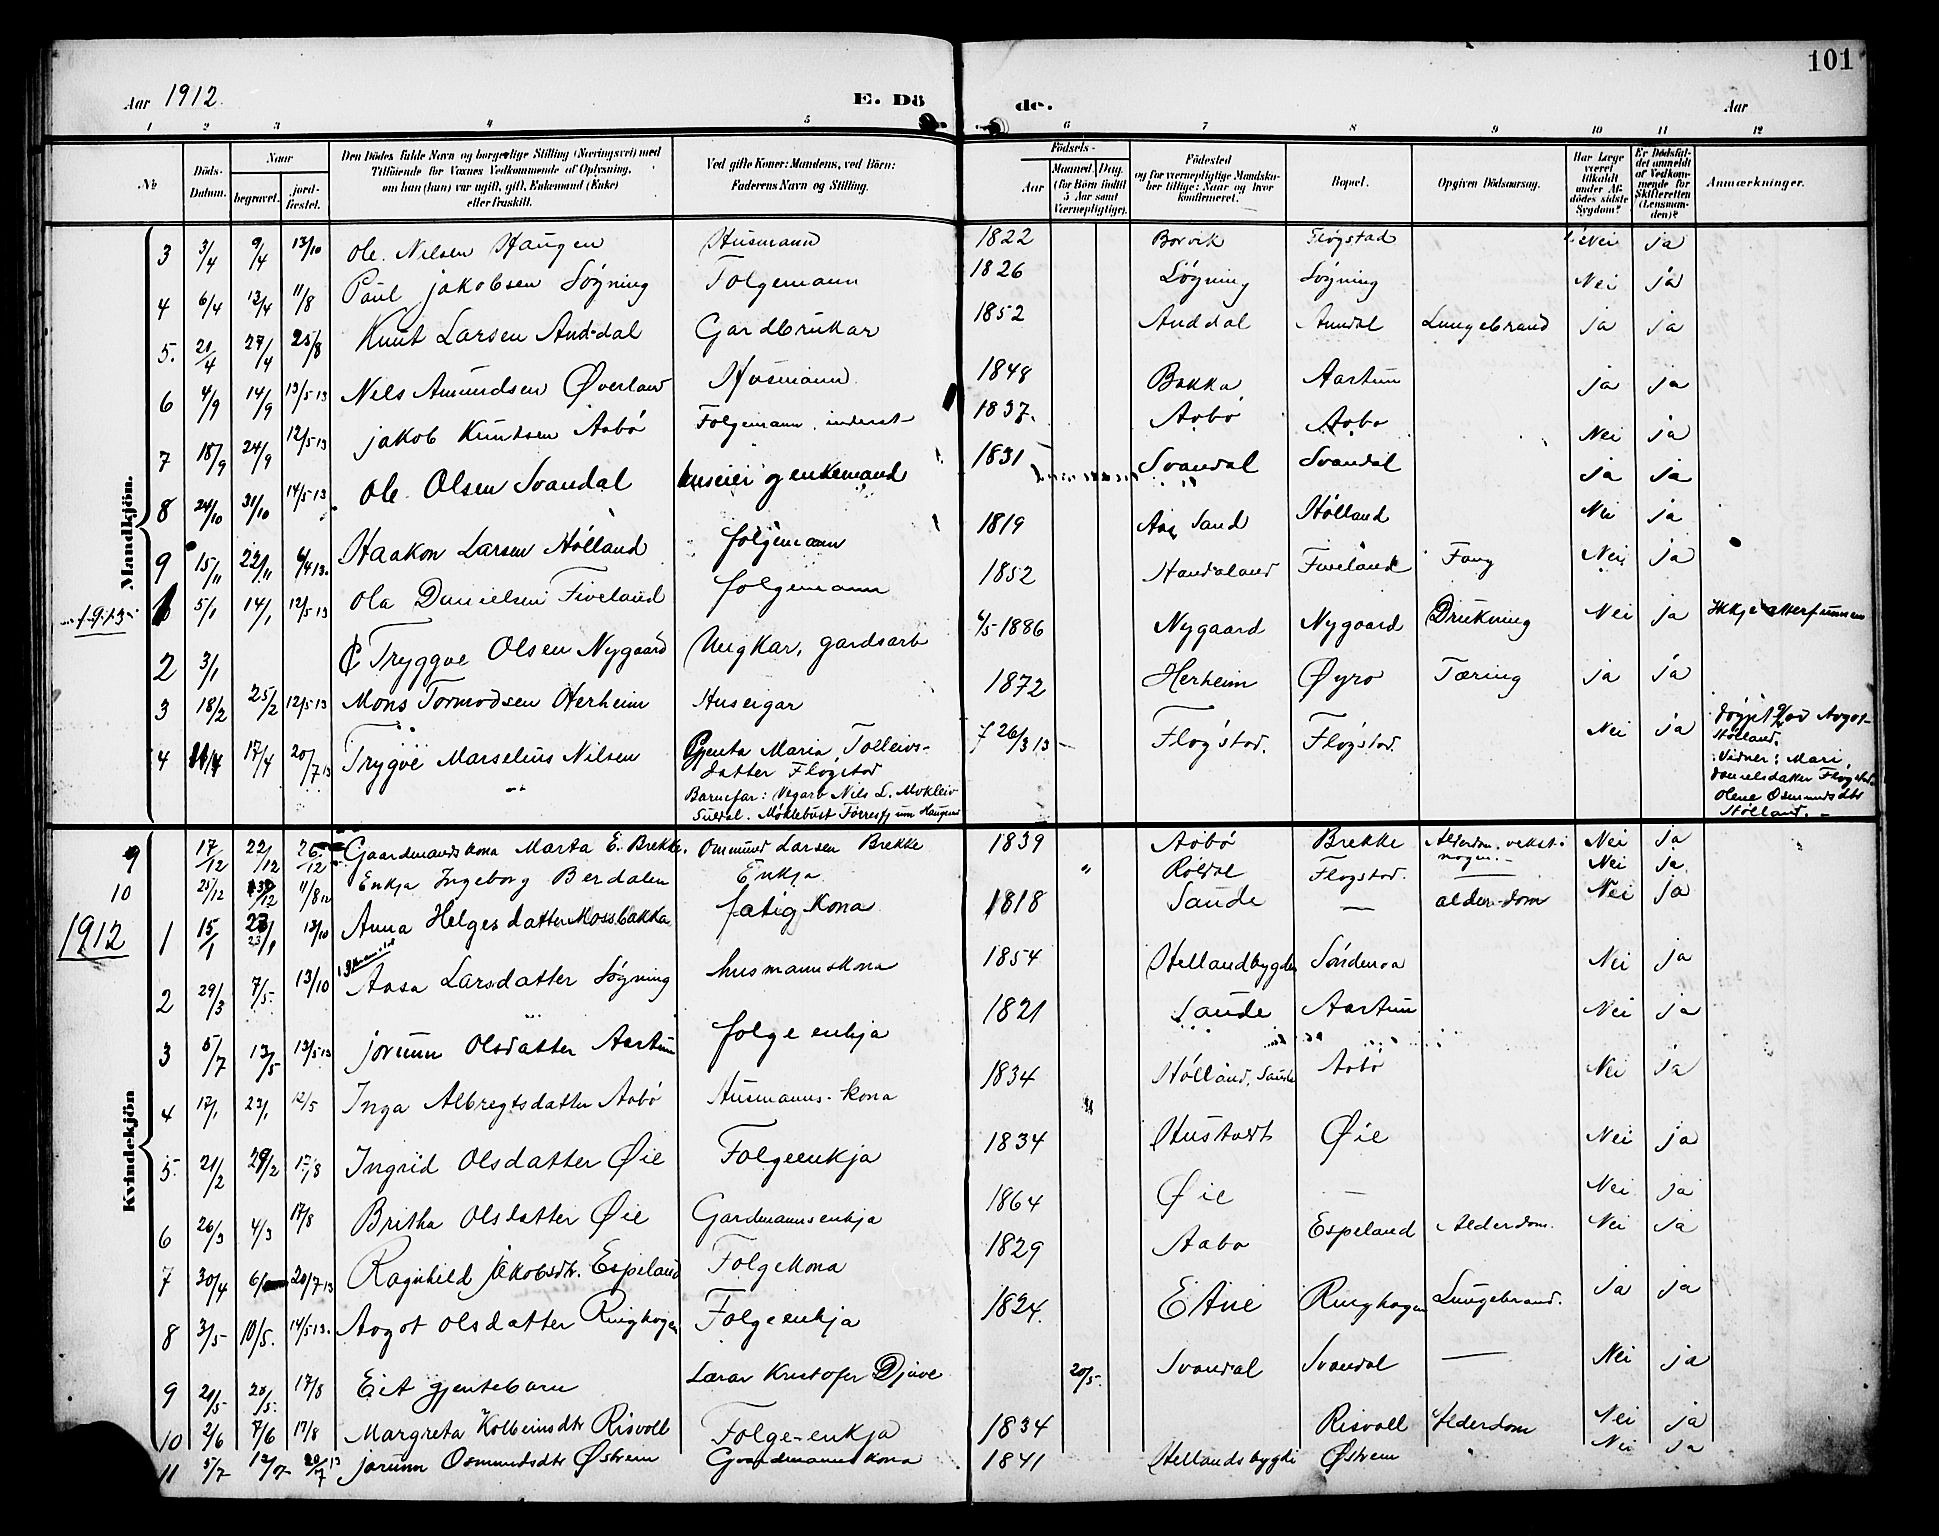 101
Aar 1912. E. Dö de. Aar
1 2 3 4 5 6 7 8 9 10 11 12
No Döds-Datum. Naar begravet. jord-fæstet. Den Dödes fulde Navn og borgerlige Stilling (Næringsvei) med Tilföiende for Voxnes Vedkommende af Oplysning, om han (hun) var ugift, gift, Enkemand (Enke) eller fraskilt. Ved gifte Koner: Mandens, ved Börn: Faderens Navn og Stilling. Födsels- Aar Maaned. Dag. (for Börn indtil 5 Aar samt Værnepligtige). Födested og for værnepligtige Mandskaber tillige: Naar og hvor konfirmeret. Bopæl. Opgiven Dödsaarsag. Har Læge været tilkaldt under Afdödes sidste Sygdom? Er Dödsfaldet anmeldt af Vedkommende for Skifteretten (Lensmanden)? Anmærkninger.
Mandkjön.
3 3/4 9/4 13/10 Ole Nilsen Haugen Husmann 1822 Borvik Fløgstad Nei ja
4 6/4 12/4 11/8 Paul Jakobsen Søgning Folgemann 1826 Søgning Søgning Nei ja
5. 21/4 27/4 25/8 Knut Larsen Anddal Gardbrukar 1852 Anddal Anndal Lungebrand ja ja
6 4/9 14/9 13/5 13 Nils Amundsen Øverland Husmann 1848 Bakka Aartun ja ja
7 18/9 24/9 12/5 13 Jakob Knutsen Aabø Folgemann, inderst 1837. Aabø Aabo Nei ja
8 24/10 31/10 14/5 13 Ole Olsen Svandal huseier g enkemand 1831 Svandal Svandal ja ja
9 15/11 22/11 4/4 13. Haakon Larsen Hølland folgemann 1819 Sand Hølland Nei ja
1913 1 5/1 14/1 12/5 13 Ola Danielsen Fiveland folgemann 1852 Handaland Fiveland Nei ja
2 3/1 Tryggve Olsen Nygaard Ungkar, gardsarb 4/5 1886 Nygaard Nygaard Drukning Nei ja Ikkje atterfunnen
3 18/2 25/2 12/5 13 Mons Tormodsen Herheim Huseigar 1872 Herheim Øyro Tæring ja ja
4 11/4 17/4 20/7 13 Trygve Marselius Nilsen Gjenta Maria Tolleivs-
datter Fløgstad f 26/3 13 Fløgstad. Fløgstad. Nei ja døypt av Aagot
Hølland.
Barnefar: Vegarb Nils L. Mokleiv Vidner: Mari,
Suldal. Møklebust Danielsdatter Fløgstad
Olene Osmundsdtr
Hølland.
Kvindekjön
9 17/12 22/12 26/12 Gaardmandskona Marta E. Brekke. Ommund Larsen Brekke 1839 Aabø Brekke Nei ja
10 25/12 11/8 12 Enkja Ingeborg Berdalen Enkja " Røldal Fløgstad. Nei ja
1912 1 15/1 23/1 13/10 Anna Helgesdatter Mossbakka fatig kona 1818 Saude — alderdom Nei ja
2 29/3 7/5. 13/10 Aasa Larsdatter Søgning husmannskona 1854 Hellandbygden Søndenaa Nei ja
3 5/7 13/5 13/5 13 Jorunn Olsdatter Aartun folge enkja 1821 Saude Aartun Nei ja
4 17/1 23/1 12/5 Inga Albregtsdatter Aabø Husmanns-kona 1834 Hølland, Saude Aabø Nei ja
5. 21/2 29/2 17/8 Ingrid Olsdatter Øie Folgeenkja 1834 Hustvedt Øie Nei ja
6 26/3 4/3 17/8 Britha Olsdatter Øie Gardmannsenkja 1864 Øie — Nei ja
7 30/4 20/7 13 Ragnhild Jakobsdtr. Espeland Folgekona 1829 Aabo Espeland Alderdom. Nei ja
8 3/5 10/5. 14/5 13. Aagot Olsdatter Ringhagen Folgeenkja 1824. Ringhagen Lungebrand. ja ja
9 20/5 20/5. 17/8 Eit gjentebarn Lærar Kristofer Djuve 20/5. Svandal Svandal — Nei ja
10 2/6 7/6 17/8 Margreta Kolbeinsdtr Risvoll Folge-enkja 1834 Risvoll Alderdom Nei ja
11 5/7 12/7 20/7 13 Jorunn Osmundsdtr Østrem Gaardmannskona 1841 Hellandsbygdi Østrem Nei ja